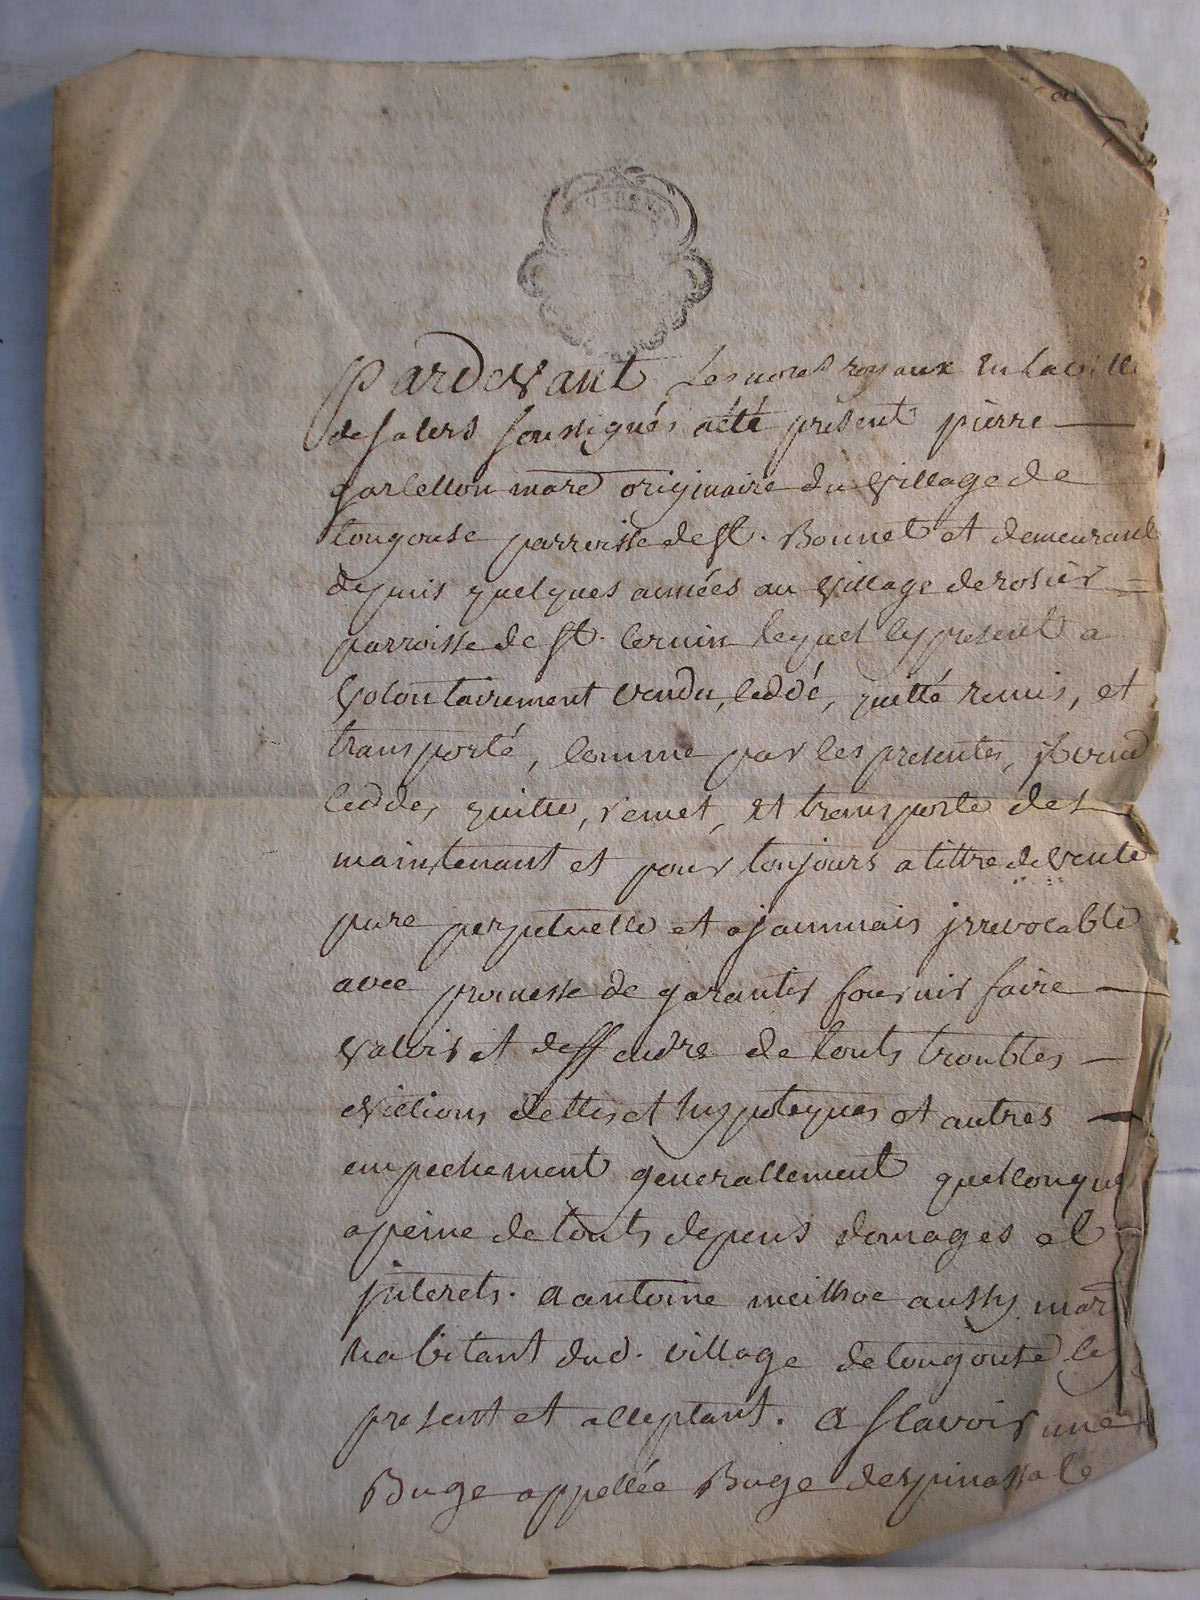 Pardevant Les nores royaux En la ville
de salers soussignés a été présent pierre
marcd originaire du village de
tougouse parroisse de St. Bonnet et demeurant
depuis quelques années au village de rosier
parroisse de St. Cernin lequel icy present a
volontairement vendu, ceddé, quitté remis, et
transporté, comme par les presentes, il vend
cedde, quitte, remet, et transporte des
maintenant et pour toujours a tittre de vente
pure perpetuelle et ajammais irrevocable
avec promesse de garantir fournir faire
valoir et deffendre de touts troubles
evictions dettes et hypoteques et autres
empechement generallement quelconques
a peine de touts depens domages et
jnterets. a antoine meilhoc aussy marcd
habitant dud. village de tougouse icy
present et acceptant. a scavoir une
Buge appellée Buge despinassole